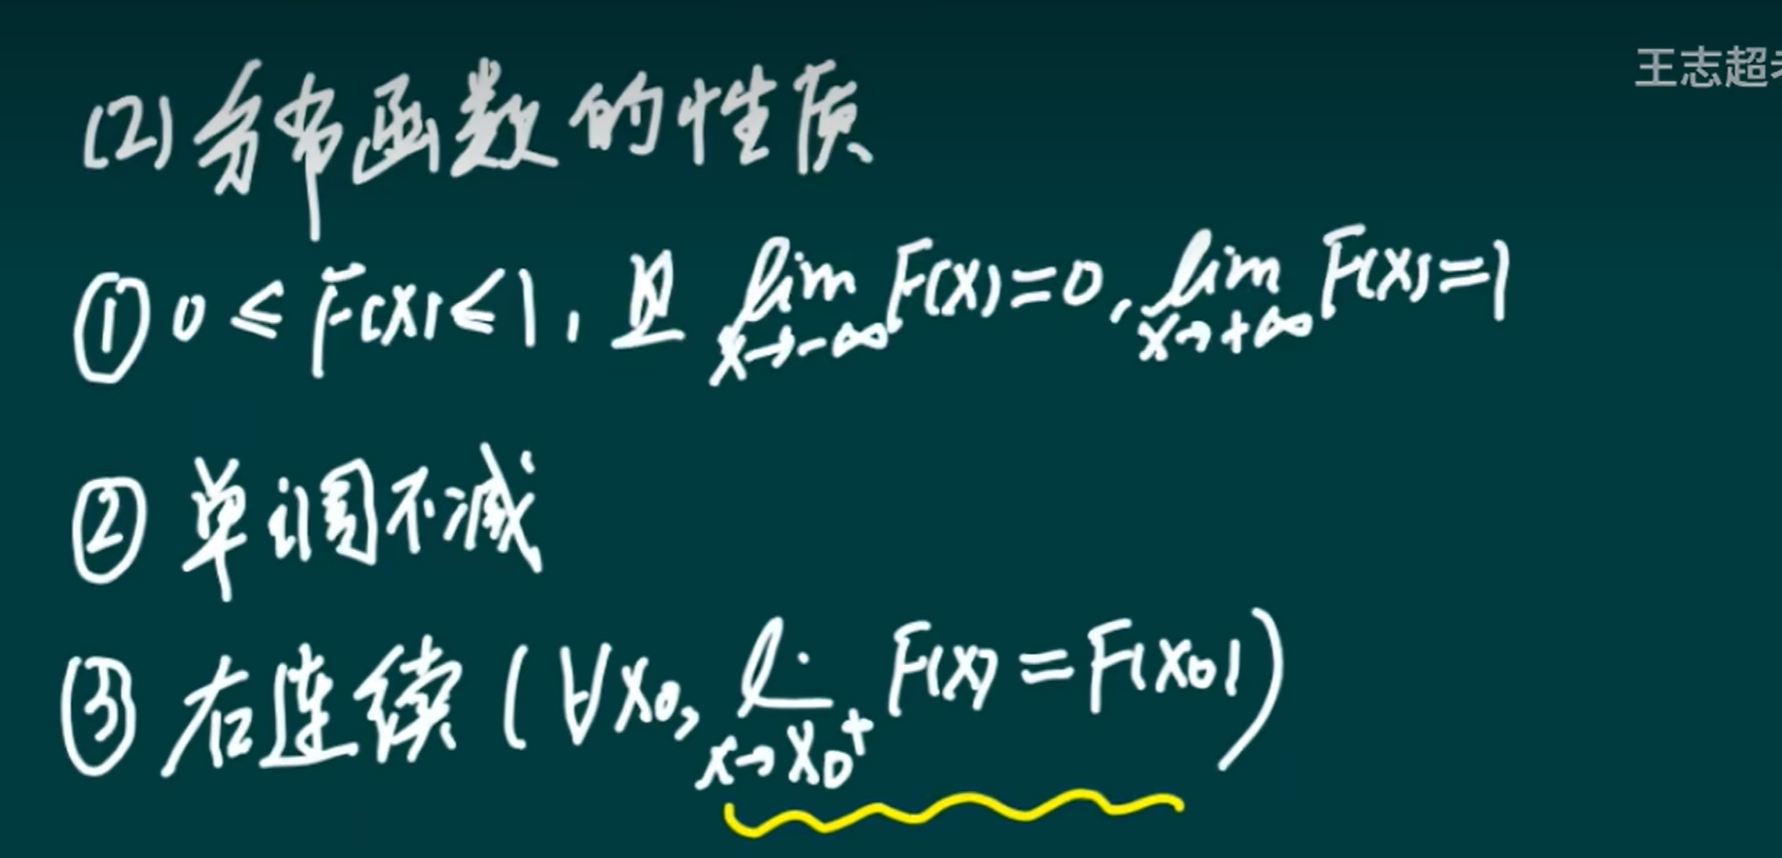 王志超
(2) 分布函数的性质
① 0 ≤ F(x) ≤ 1, 且 lim x→-∞ F(x) = 0, lim x→+∞ F(x) = 1
② 单调不减
③ 右连续 (∀x₀, l· x→x₀⁺ F(x) = F(x₀))